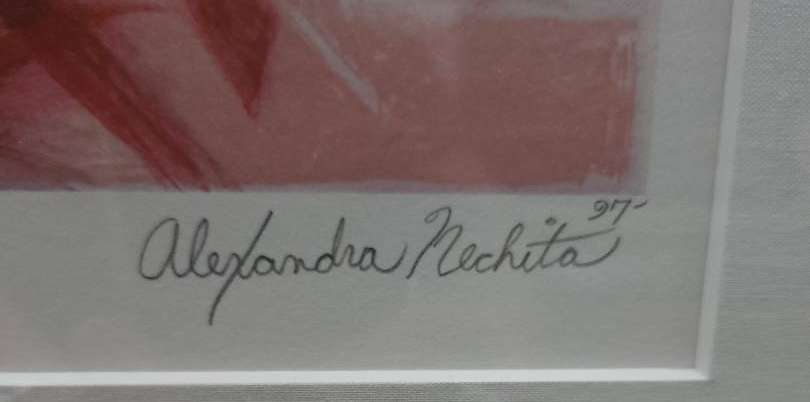 Alexandra Nechita 97-